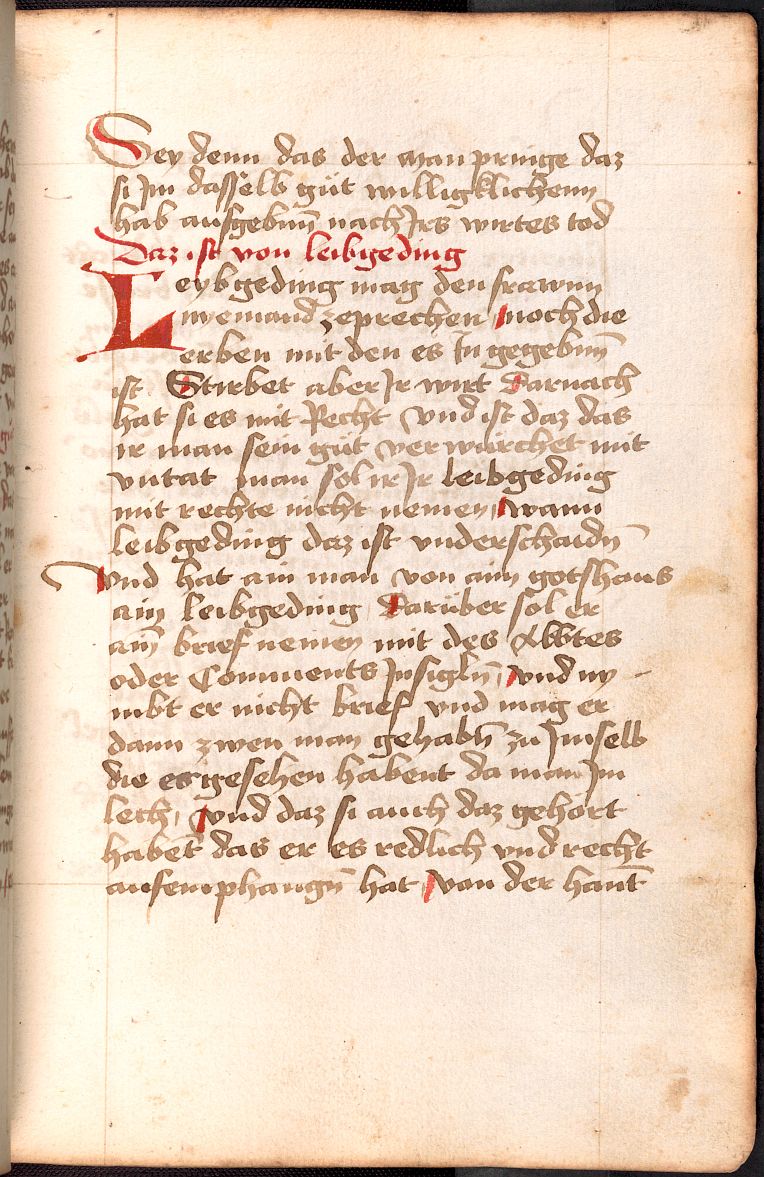 Sey denn das der man pringe daz
si im dasselb güt willigklichenn
hab aufgebnn̄ nach Irs wirtes tod
Daz ist von leibgeding
Leybgeding mag den frawnn
nyemand zeprechen noch die
erben mit den es In gegebnn̄
ist Stirbet aber Ir wirt Darnach
hat si es mit Recht Vnd ist daz das
ir man sein güt verwürchet mit
vntat man sol ir Ir leibgeding
mit rechte nicht nemen wann
leibgeding daz ist vnderschaidn̄
Vnd hat ain man von aim gotshaus
ain leibgeding Darüber sol er
ain̄ brief nemen mit des Abbtes
oder Comments Insigln̄ vnd ny
mbt er nicht brief vnd mag er
dann zwen man gehabn̄ zu Imselb
die es gesehen habent da man Im
lech, vnd daz si auch daz gehört
habēt das er es redlich vnd recht
aufemphangn̄ hat von der hant̄